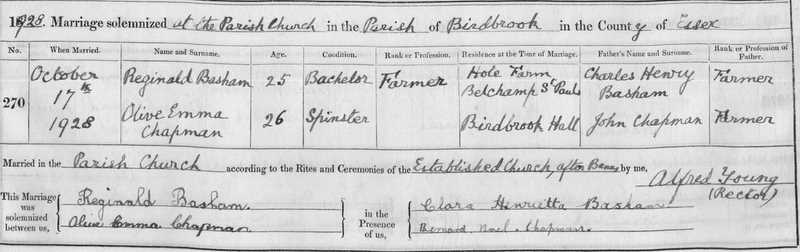 1928. Marriage solemnized at the Parish Church in the Parish of Birdbrook in the County of Essex
No. When Married. Name and Surname. Age. Condition. Rank or Profession. Residence at the Time of Marriage. Father's Name and Surname. Rank or Profession of Father.
270 October 17th 1928
Reginald Basham 25 Bachelor Farmer Hole Farm Belchamp St Pauls Charles Henry Basham Farmer
Olive Emma Chapman 26 Spinster Birdbrook Hall John Chapman Farmer
Married in the Parish Church according to the Rites and Ceremonies of the Established Church, after Banns by me,
Alfred Young
(Rector)
This Marriage was solemnized between us, Reginald Basham. in the Presence of us, Clara Henrietta Basham
Olive Emma Chapman Bernard Noel. Chapman.